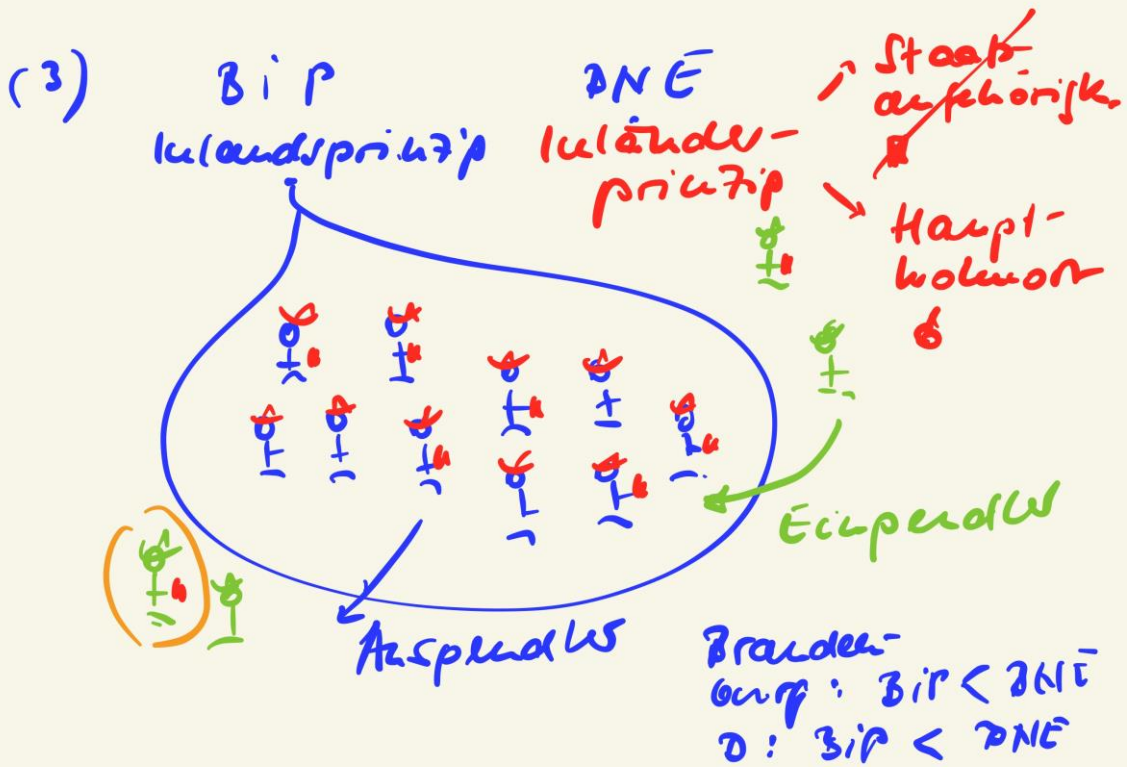 (3)
BiP
Inlandsprinzip
BNE
Inländer-
prinzip
Staats-
angehörigk.
Haupt-
wohnort
Einpendler
Auspendler
Branden-
burg: BiP < BNE
D: BiP < BNE